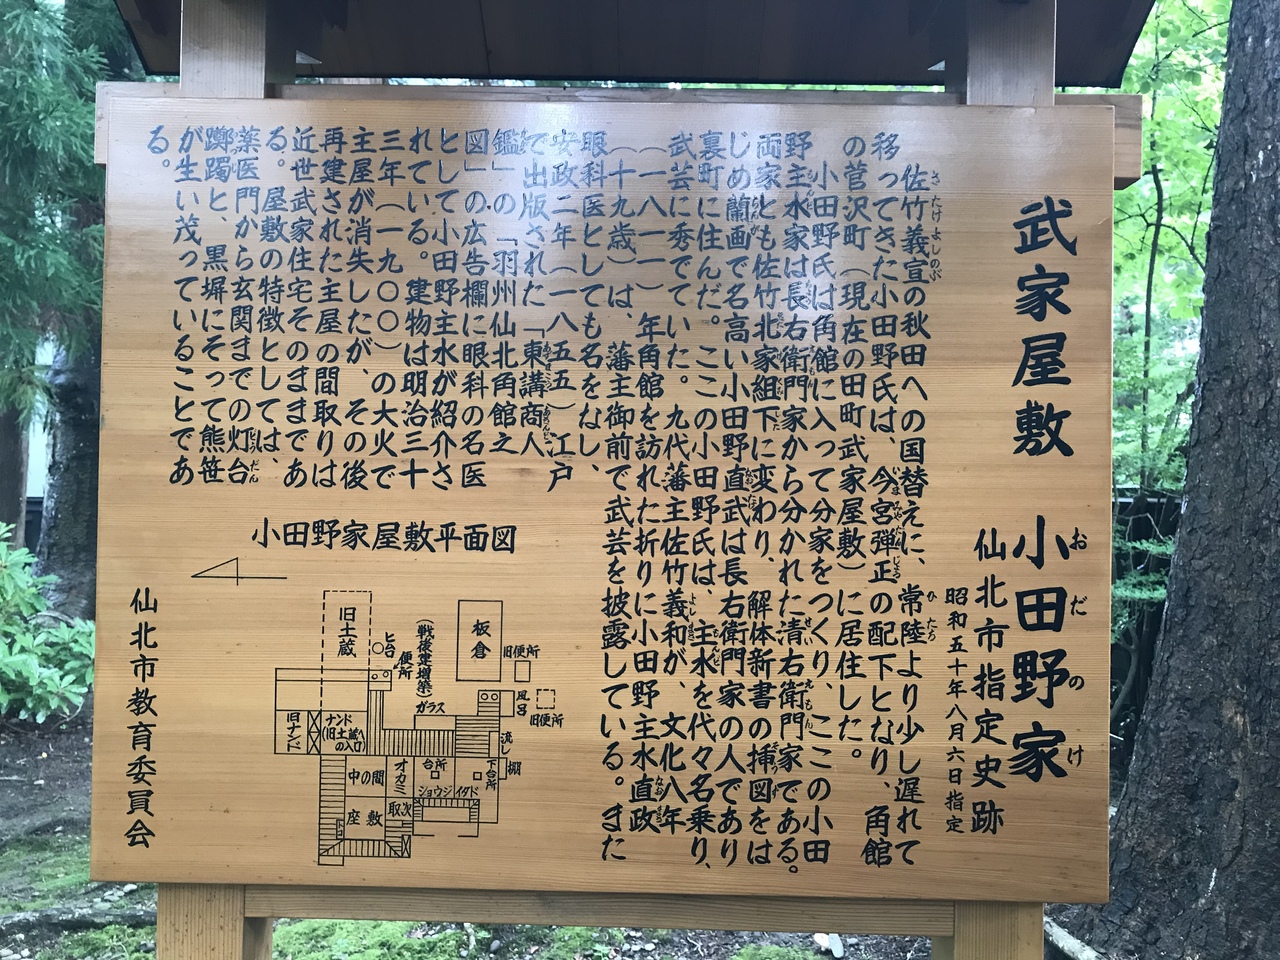 武家屋敷 小田野家
おだのけ
仙北市指定史跡
昭和五十年八月六日指定
佐竹義宣の秋田への国替えに、常陸より少し遅れて
移ってきた小田野氏は、今宮弾正の配下となり、角館
の菅沢町(現在の田町武家屋敷)に居住した。
小田野氏は角館に入って分家をつくり、ここの小田
野主水家は長右衛門家から分かれた清右衛門家である。
両家とも佐竹北家組下に変わり、解体新書の挿図をは
じめ蘭画で名高い小田野直武は長右衛門家の人であり
裏町に住んだ。ここの小田野氏は、主水を代々名乗り、
武芸に秀でていた。九代藩主佐竹義和が、文化八年
(一八一一)年角館を訪れた折りに小田野主水直政
(十九歳)は、藩主御前で武芸を披露している。また
眼科医としても名をなし、
安政二年(一八五五)江戸
で出版された「東講商人
鑑」の「羽州仙北角館之
図」の広告欄に眼科の名医
として小田野主水が紹介さ
れている。建物は明治三十
三年(一九〇〇)の大火で
主屋が消失したが、その後
再建された主屋の間取りは
近世武家住宅そのままであ
る。屋敷の特徴としては、
薬医門から玄関までの灯台
躑躅と、黒塀にそって熊笹
が生い茂っていることであ
る。
小田野家屋敷平面図
旧土蔵
板倉
旧便所
便所
(戦後建増築)
ガラス
風呂
旧便所
旧ナンド
ナンド
(旧土蔵への入口)
流し
棚
中の間
オカミ
台所
下台所
ショウジ
イタド
取次
座敷
トコ
仙北市教育委員会